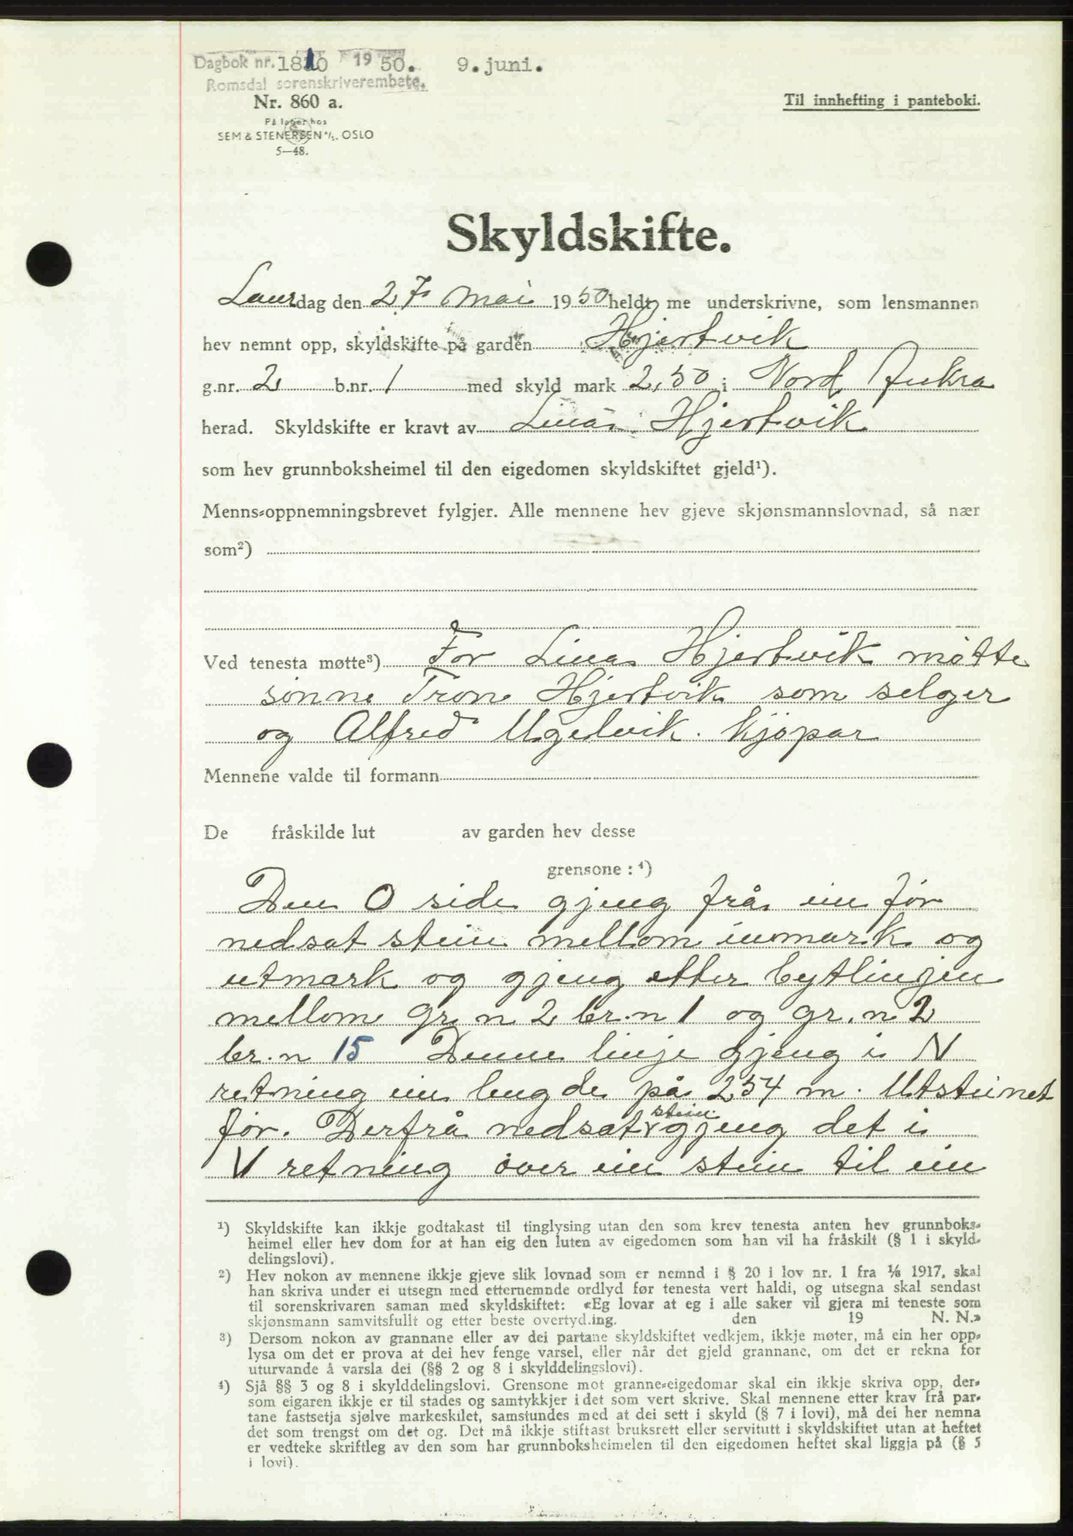 Dagbok nr. 1810 1950. 9. juni.
Romsdal sorenskriverembete.
Nr. 860 a.
Til innhefting i panteboki.
På lager hos
SEM & STENERSEN A/S, OSLO
5—48.
Skyldskifte.
Laurdag den 27 Mai 1950 heldt me underskrivne, som lensmannen
hev nemnt opp, skyldskifte på garden Hjertvik
g.nr. 2 b.nr. 1 med skyld mark 2,50 i Nord Aukra
herad. Skyldskifte er kravt av Linas Hjertvik
som hev grunnboksheimel til den eigedomen skyldskiftet gjeld¹).
Menns-oppnemningsbrevet fylgjer. Alle mennene hev gjeve skjønsmannslovnad, så nær
som²)
Ved tenesta møtte³) For Linas Hjertvik møtte
sønne Trone Hjertvik som selger
og Alfred Ugelvik. kjøpar
Mennene valde til formann
De fråskilde lut av garden hev desse
grensone : ⁴)
Den O side gjeng frå ein før
nedsat stein mellom inmark og
utmark og gjeng etter bytlinjen
mellom gr. n 2 br. n 1 og gr. n 2
br. n 15 Denne linje gjeng i N
retning ein lengde på 254 m. Utsteinet
før. Derfrå nedsat stein gjeng det i
V retning over ein stein til ein
¹) Skyldskifte kan ikkje godtakast til tinglysing utan den som krev tenesta anten hev grunnboks-
heimel eller hev dom for at han eig den luten av eigedomen som han vil ha fråskilt (§ 1 i skyld-
delingslovi).
²) Hev nokon av mennene ikkje gjeve slik lovnad som er nemnd i § 20 i lov nr. 1 fra ⅛ 1917, skal
han skriva under ei utsegn med etternemnde ordlyd før tenesta vert haldi, og utsegna skal sendast
til sorenskrivaren saman med skyldskiftet: «Eg lovar at eg i alle saker vil gjera mi teneste som
skjønsmann samvitsfullt og etter beste overtyding. den 19 N. N.»
³) Dersom nokon av grannane eller av dei partane skyldskiftet vedkjem, ikkje møter, må ein her opp-
lysa om det er prova at dei hev fenge varsel, eller når det gjeld grannane, om det er rekna for
uturvande å varsla dei (§§ 2 og 8 i skylddelingslovi).
⁴) Sjå §§ 3 og 8 i skylddelingslovi. Grensone mot granne-eigedomar skal ein ikkje skriva opp, der-
som eigaren ikkje er til stades og samtykkjer i det som vert skrive. Skal mennene etter krav frå par-
tane fastsetja sjølve markeskilet, samstundes med at dei sett i skyld (§ 7 i lovi), må dei her nemna
det som trengst om det og. Det må ikkje stiftast bruksrett eller servitutt i skyldskiftet utan at heftet
er vedteke skriftleg av den som har grunnboksheimelen til den eigedomen heftet skal liggja på (§ 5
i lovi).